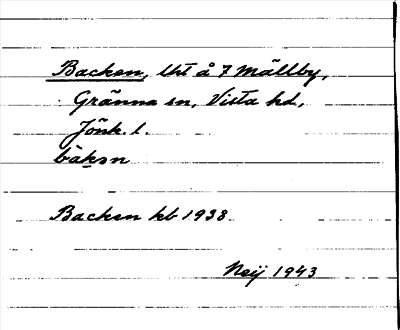 Backen, lht å 7 Mällby,
Gränna sn, Vista hd,
Jönk. l.
bàkən
Backen kb 1938
Neij 1943